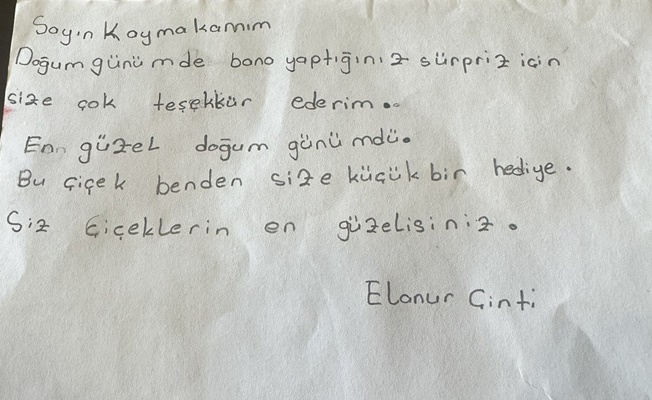 Sayın Kaymakamım
Doğum günümde bana yaptığınız sürpriz için
size çok teşekkür ederim..
En güzel doğum günümdü.
Bu çiçek benden size küçük bir hediye.
Siz Çiçeklerin en güzelisiniz.
Elanur Çinti